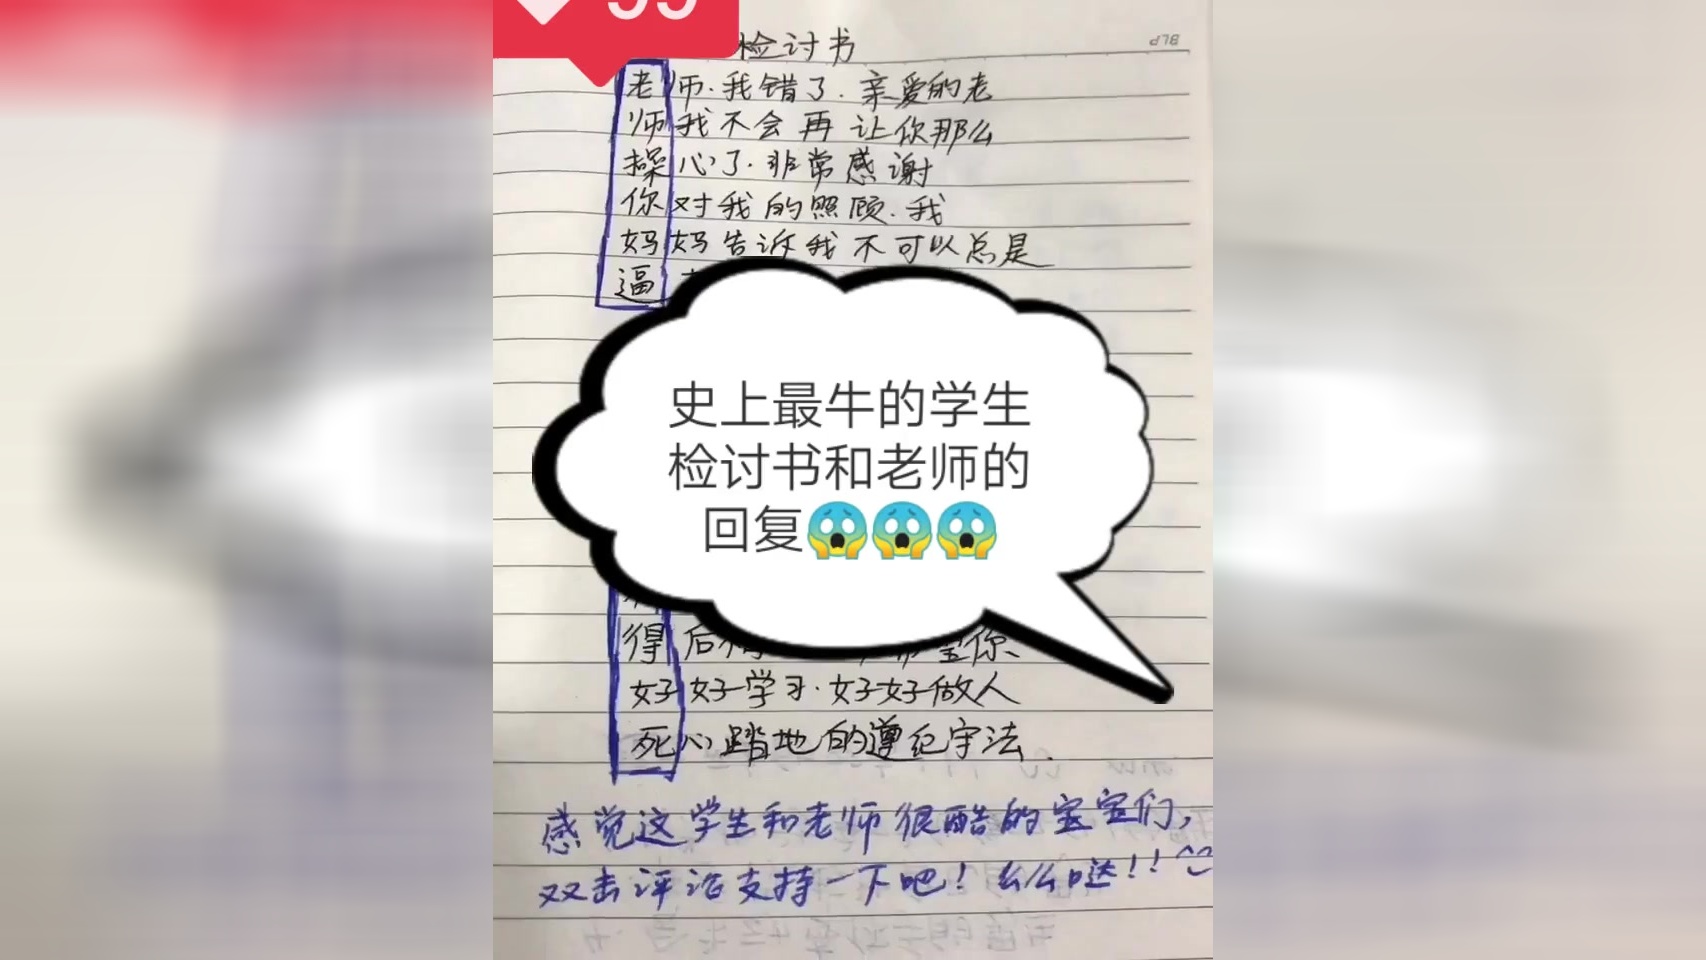 99
检讨书
BLP
老师.我错了.亲爱的老
师我不会再让你那么
操心了.非常感谢
你对我的照顾.我
妈妈告诉我不可以总是
逼
史上最牛的学生
检讨书和老师的
回复😱😱😱
得后 你、
好好学习.好好做人
死心踏地的遵纪守法.
感觉这学生和老师很酷的宝宝们,
双击评论支持一下吧!么么哒!!